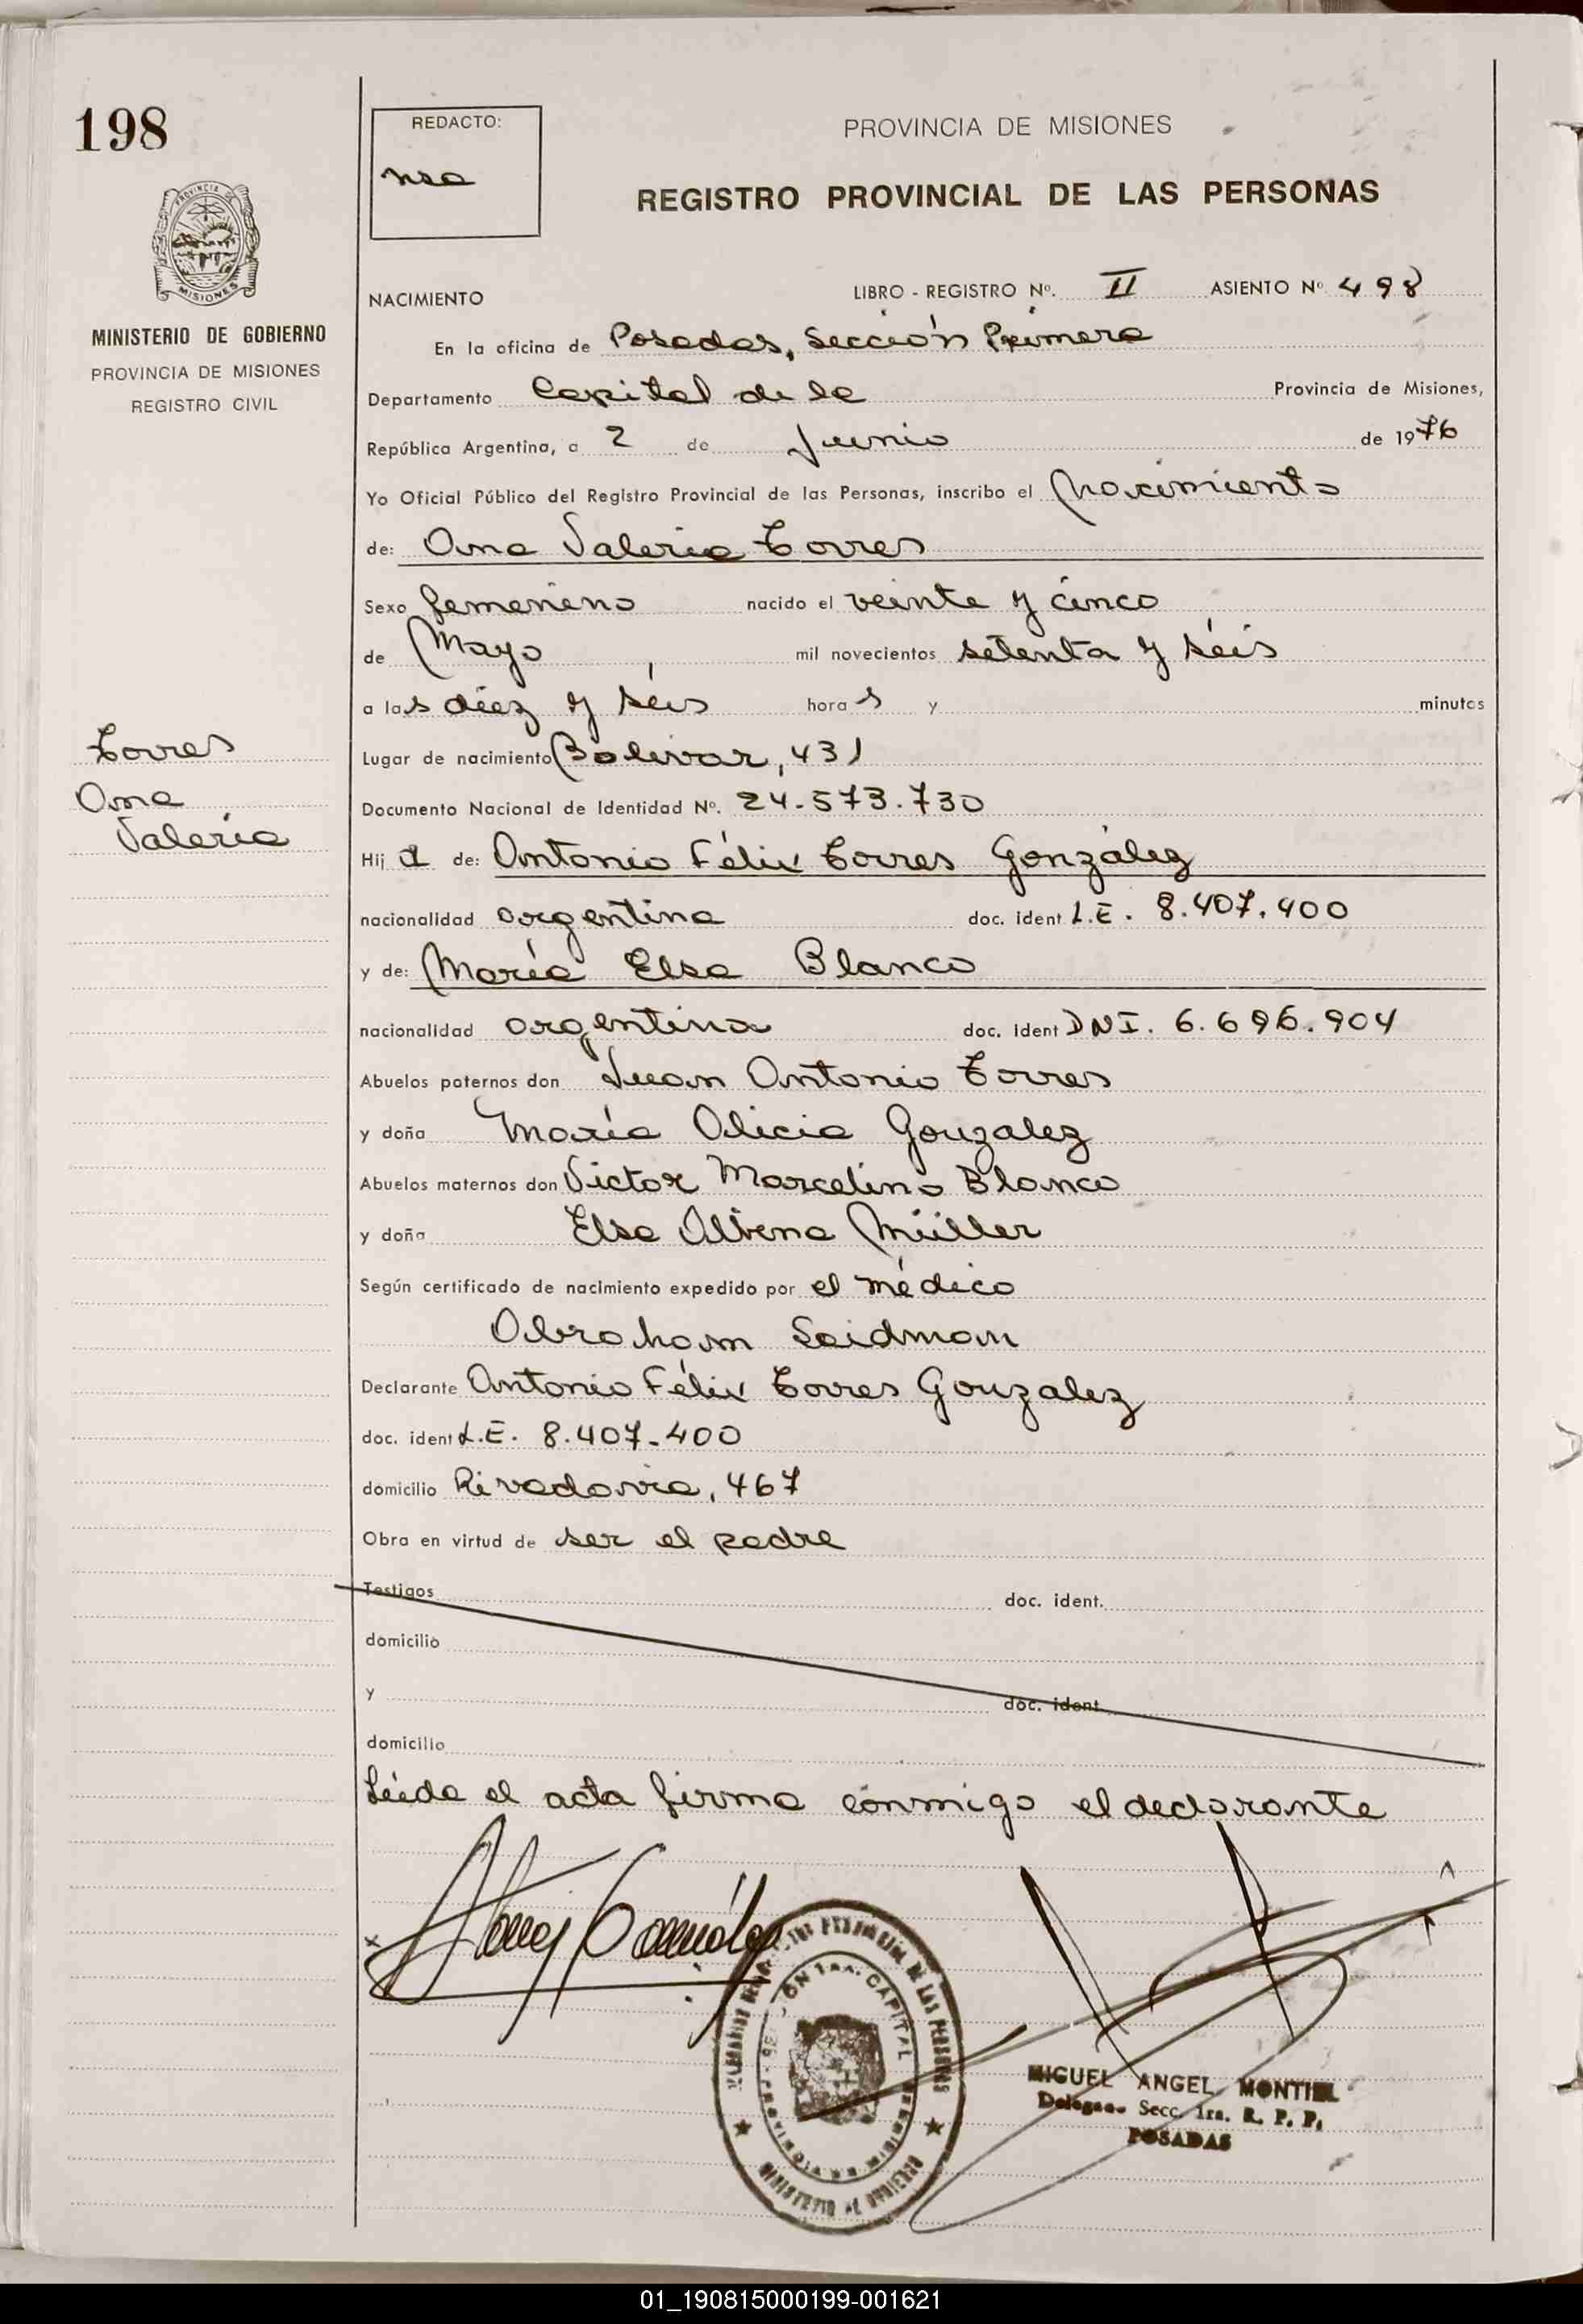 198
REDACTO:
PROVINCIA DE MISIONES
REGISTRO PROVINCIAL DE LAS PERSONAS
PROVINCIA DE
MISIONES
MINISTERIO DE GOBIERNO
PROVINCIA DE MISIONES
REGISTRO CIVIL
NACIMIENTO LIBRO - REGISTRO Nº. II ASIENTO Nº 498
En la oficina de Posadas, Sección Primera
Departamento Capital de la Provincia de Misiones,
República Argentina, a 2 de Junio de 1976
Yo Oficial Público del Registro Provincial de las Personas, inscribo el Nacimiento
de: Ana Valeria Torres
Sexo femenino nacido el veinte y cinco
de Mayo, mil novecientos setenta y séis
a las diez y séis horas y minutos
Lugar de nacimiento Bolivar, 431
Documento Nacional de Identidad Nº. 24.573.730
Hija de: Antonio Félix Torres González
nacionalidad argentina doc. ident L.E. 8.407.400
y de: María Elsa Blanco
nacionalidad argentina doc. ident DNI. 6.696.904
Abuelos paternos don Juan Antonio Torres
y doña María Alicia Gonzalez
Abuelos maternos don Victor Marcelino Blanco
y doña Elsa Albina Müller
Según certificado de nacimiento expedido por el médico
Abraham Saidman
Declarante Antonio Félix Torres Gonzalez
doc. ident L.E. 8.407.400
domicilio Rivadavia, 467
Obra en virtud de ser el padre
Testigos doc. ident.
domicilio
y doc. ident.
domicilio
Leída el acta firma conmigo el declarante
Torres
Ana
Valeria
CAPITAL
MIGUEL ANGEL MONTIEL
Secc. 1ra. R. P. P.
POSADAS
01_190815000199-001621